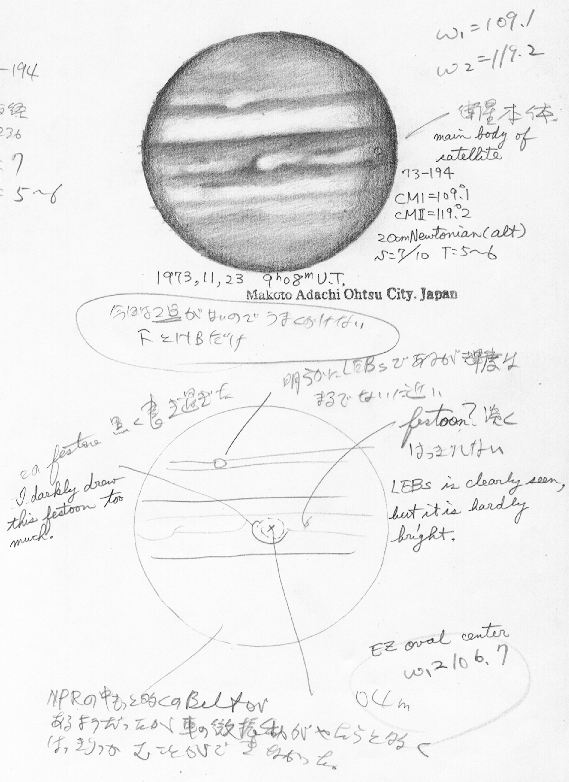 ω1=109.1
ω2=119.2
-194
経
236
7
=5~6
衛星本体
main body of
satellite
73-194
CMI=109.°1
CMII=119.°2
20cm Newtonian (alt)
S=7/10 T=5~6
1973, 11, 23 9h08m U.T.
Makoto Adachi Ohtsu City. Japan
がないのでうまくかけない
FとHBだけ
明らかにLEBsであるが輝度は
までない
festoon? 淡く
はっきりしない
festoon 黒く書き過ぎた
I darkly drew
this festoon too
much.
LEBs is clearly seen,
but it is hardly
bright.
EZ oval center
ω1 2106.7
04m
NPRの中 Beltが
あるようだったが車の微振動がやたらと
はっきりつかむことができなかった。